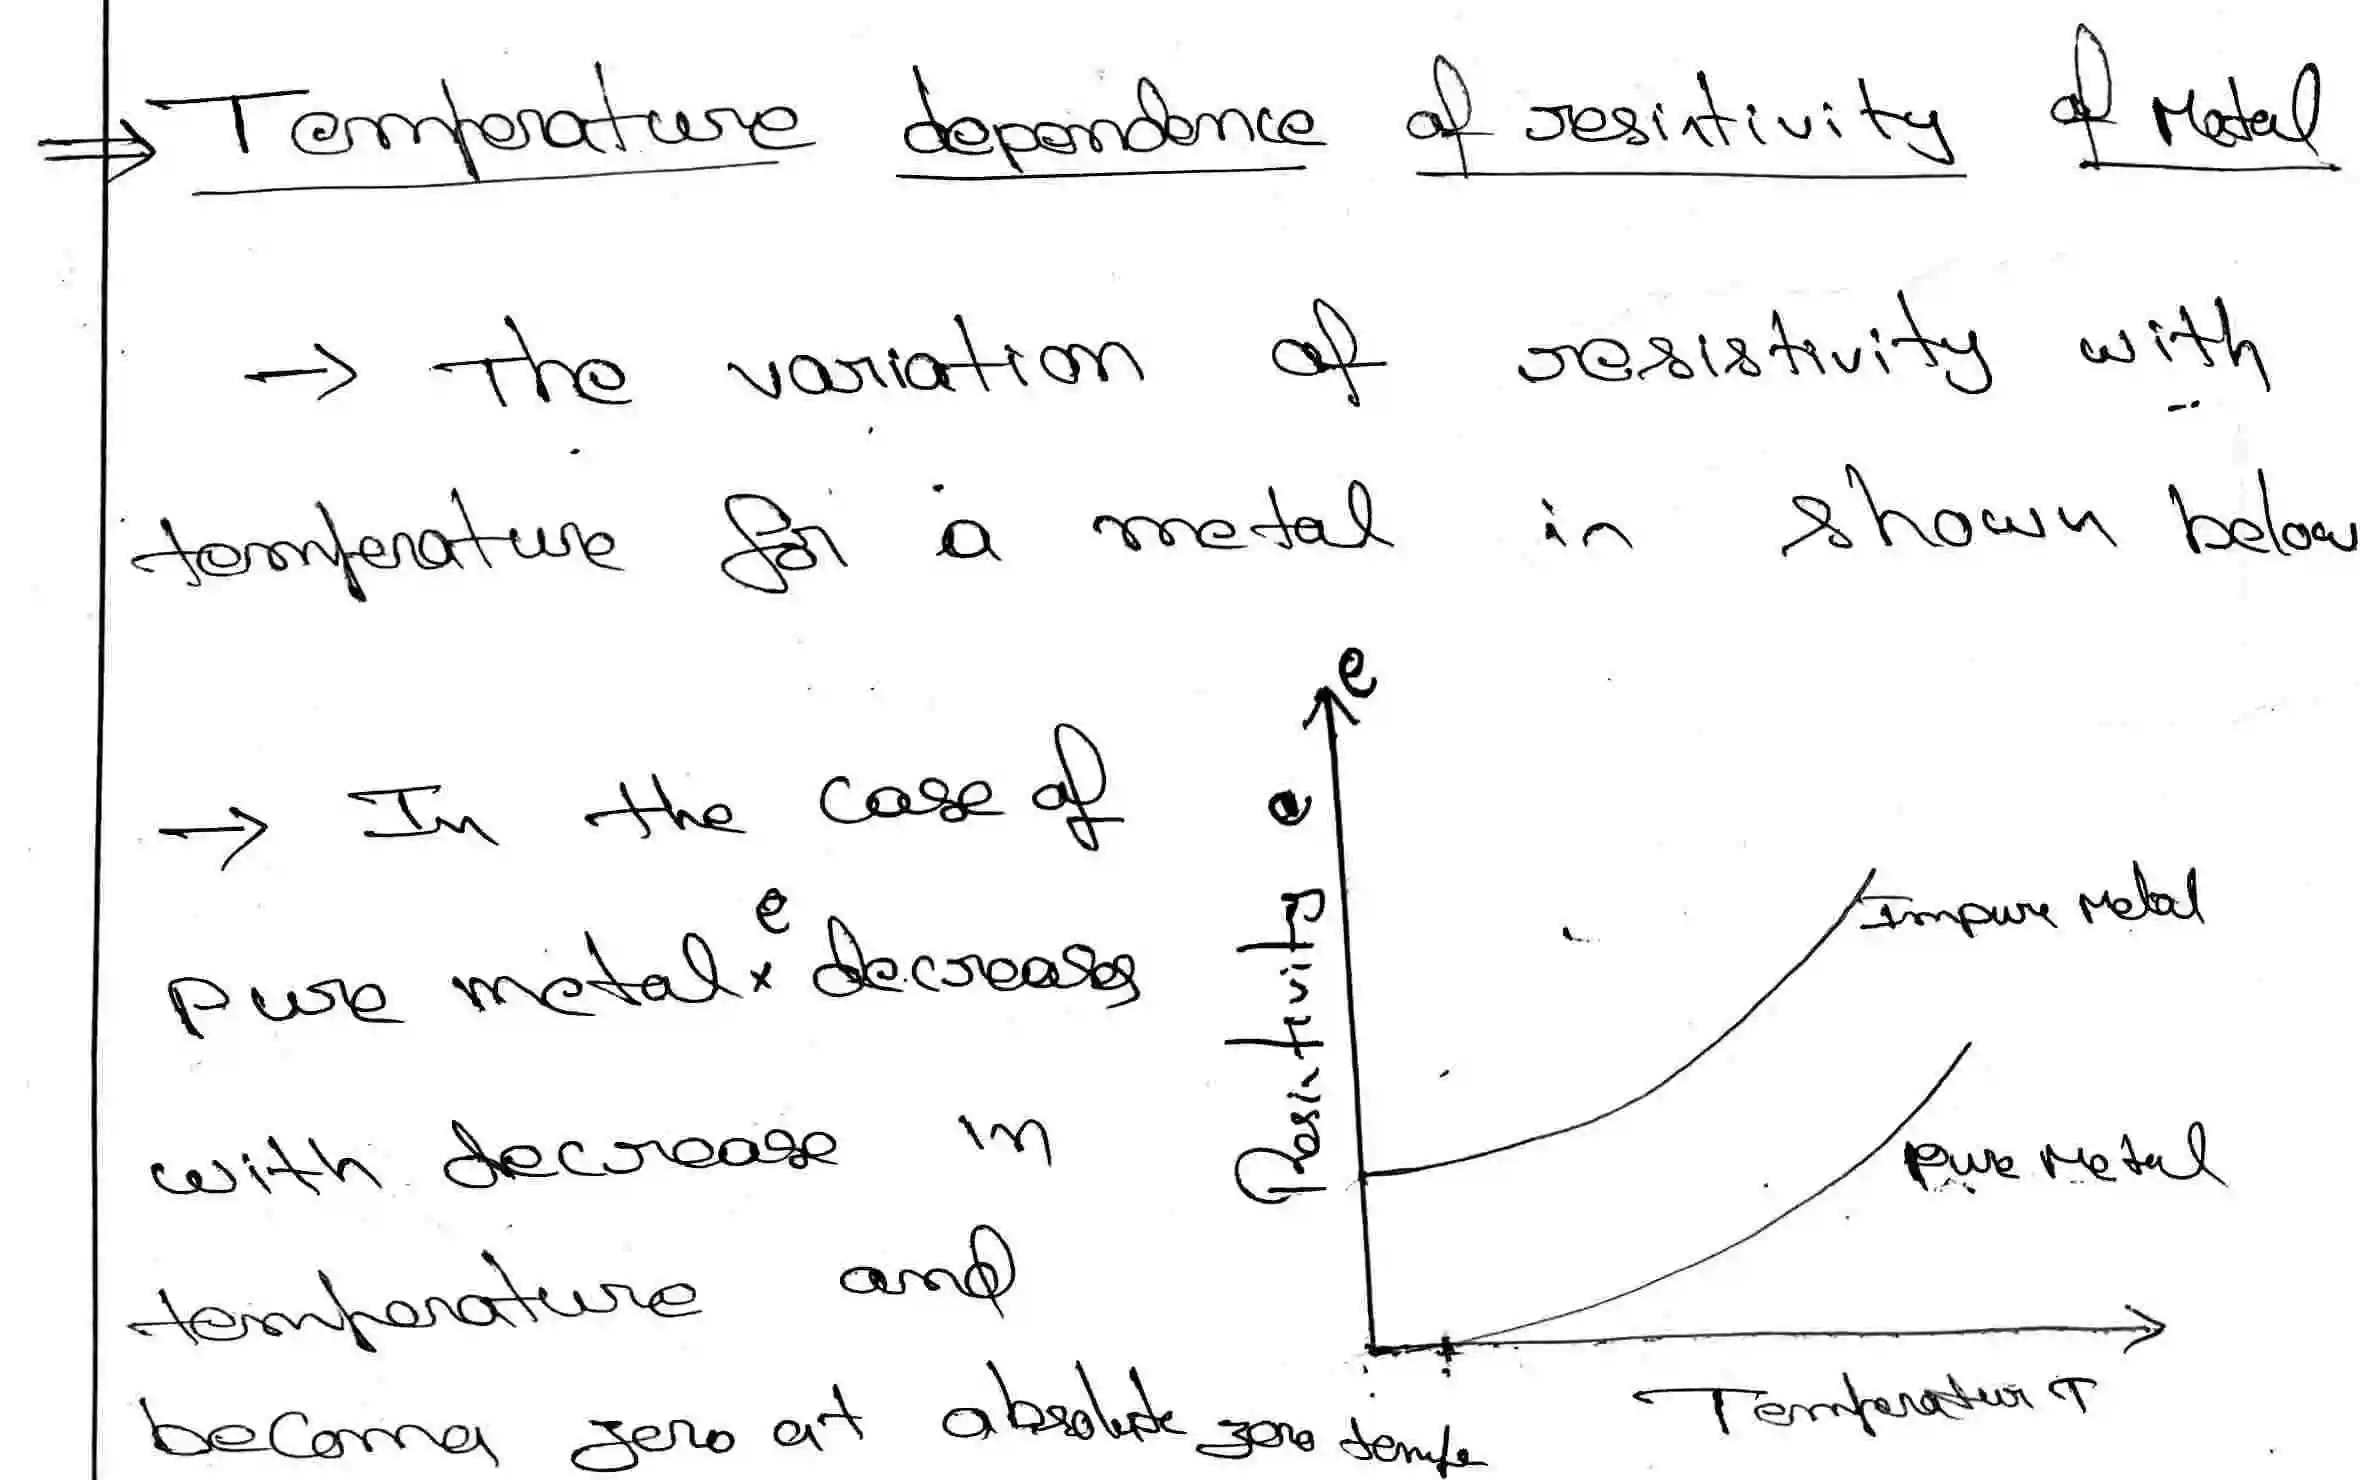 ⇒ Temperature dependence of resistivity of Metal
→ The variation of resistivity with
temperature for a metal is shown below
→ In the case of
pure metal ρ decreases
with decrease in
temperature and
becomes zero at absolute zero tempe
ρ
Resistivity
Impure Metal
Pure Metal
Temperature T